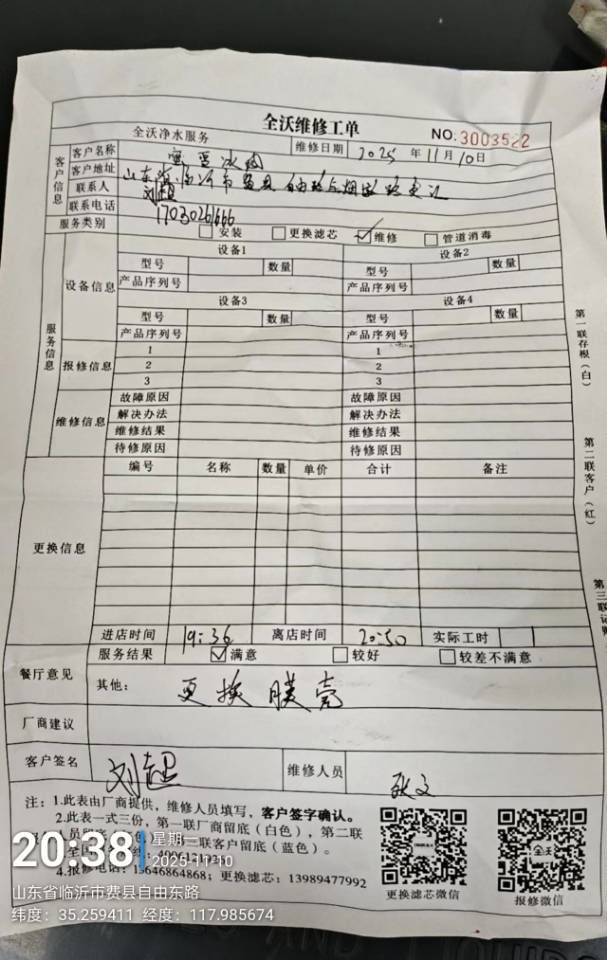 全沃维修工单
全沃净水服务
NO.3003522
客户信息
客户名称 蜜雪冰城
维修日期 2025年11月10日
客户地址 山东省临沂市费县自由路与烟
联系人 刘超
联系电话 17030261666
服务类别 安装 更换滤芯 维修 管道消毒
服务信息
设备信息
设备1 设备2
型号 数量 型号 数量
产品序列号 产品序列号
设备3 设备4
型号 数量 型号 数量
产品序列号 产品序列号
报修信息
1 1
2 2
3 3
维修信息
故障原因 故障原因
解决办法 解决办法
维修结果 维修结果
待修原因 待修原因
更换信息
编号 名称 数量 单价 合计 备注
进店时间 19:36 离店时间 20:50 实际工时 1
餐厅意见
服务结果 满意 较好 较差不满意
其他: 更换膜壳
厂商建议
客户签名 刘超 维修人员
注:1.此表由厂商提供,维修人员填写,客户签字确认。
2.此表一式三份,第一联厂商留底(白色),第二联
联客户留底(蓝色)。
4.报修电话:13646864868;更换滤芯:13989477992
更换滤芯微信 报修微信
第一联存根(白)
第二联客户(红)
第三联
20:38
星期一
2025-11-10
山东省临沂市费县自由东路
纬度:35.259411 经度:117.985674